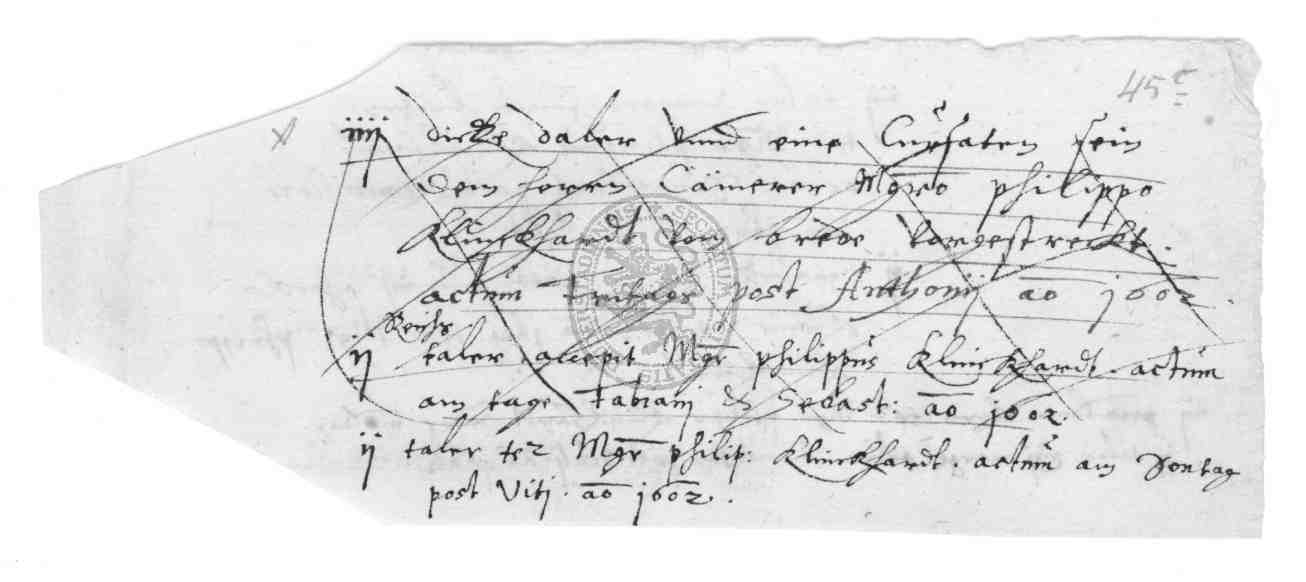 45 c
iiij dicke daler vnnd eine Cursaten sein
dem herrn Cämerer Mgro philippo
Klinckhardt von vorgestreckt.
actum freitags post Anthonij ao 1602.
Reichs
ij taler accepit Mgr philippus Klinckhardt. actum
am tage Fabiani & Sebast: ao 1602.
ij taler Mgr philip: Klinckhardt. actum am Sontag
post Viti. ao 1602.